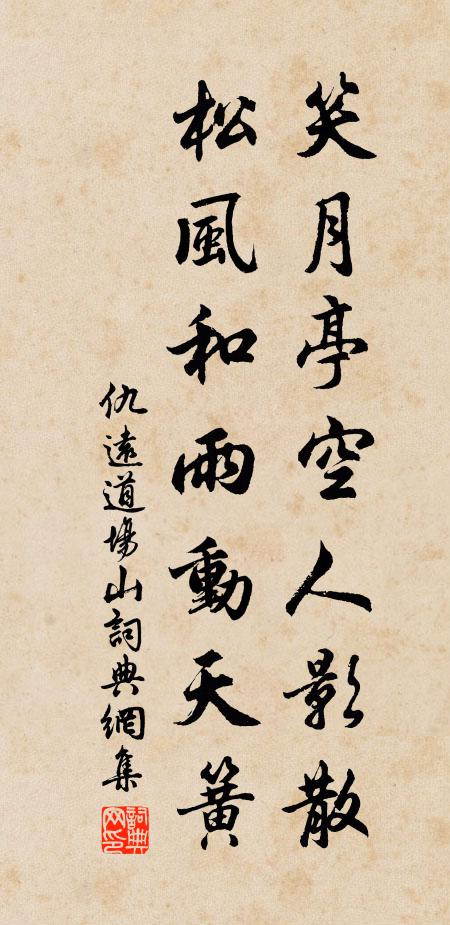 笑月亭空人影散
松風和雨動天簧
仇遠道場山詞典網集
詞典网印